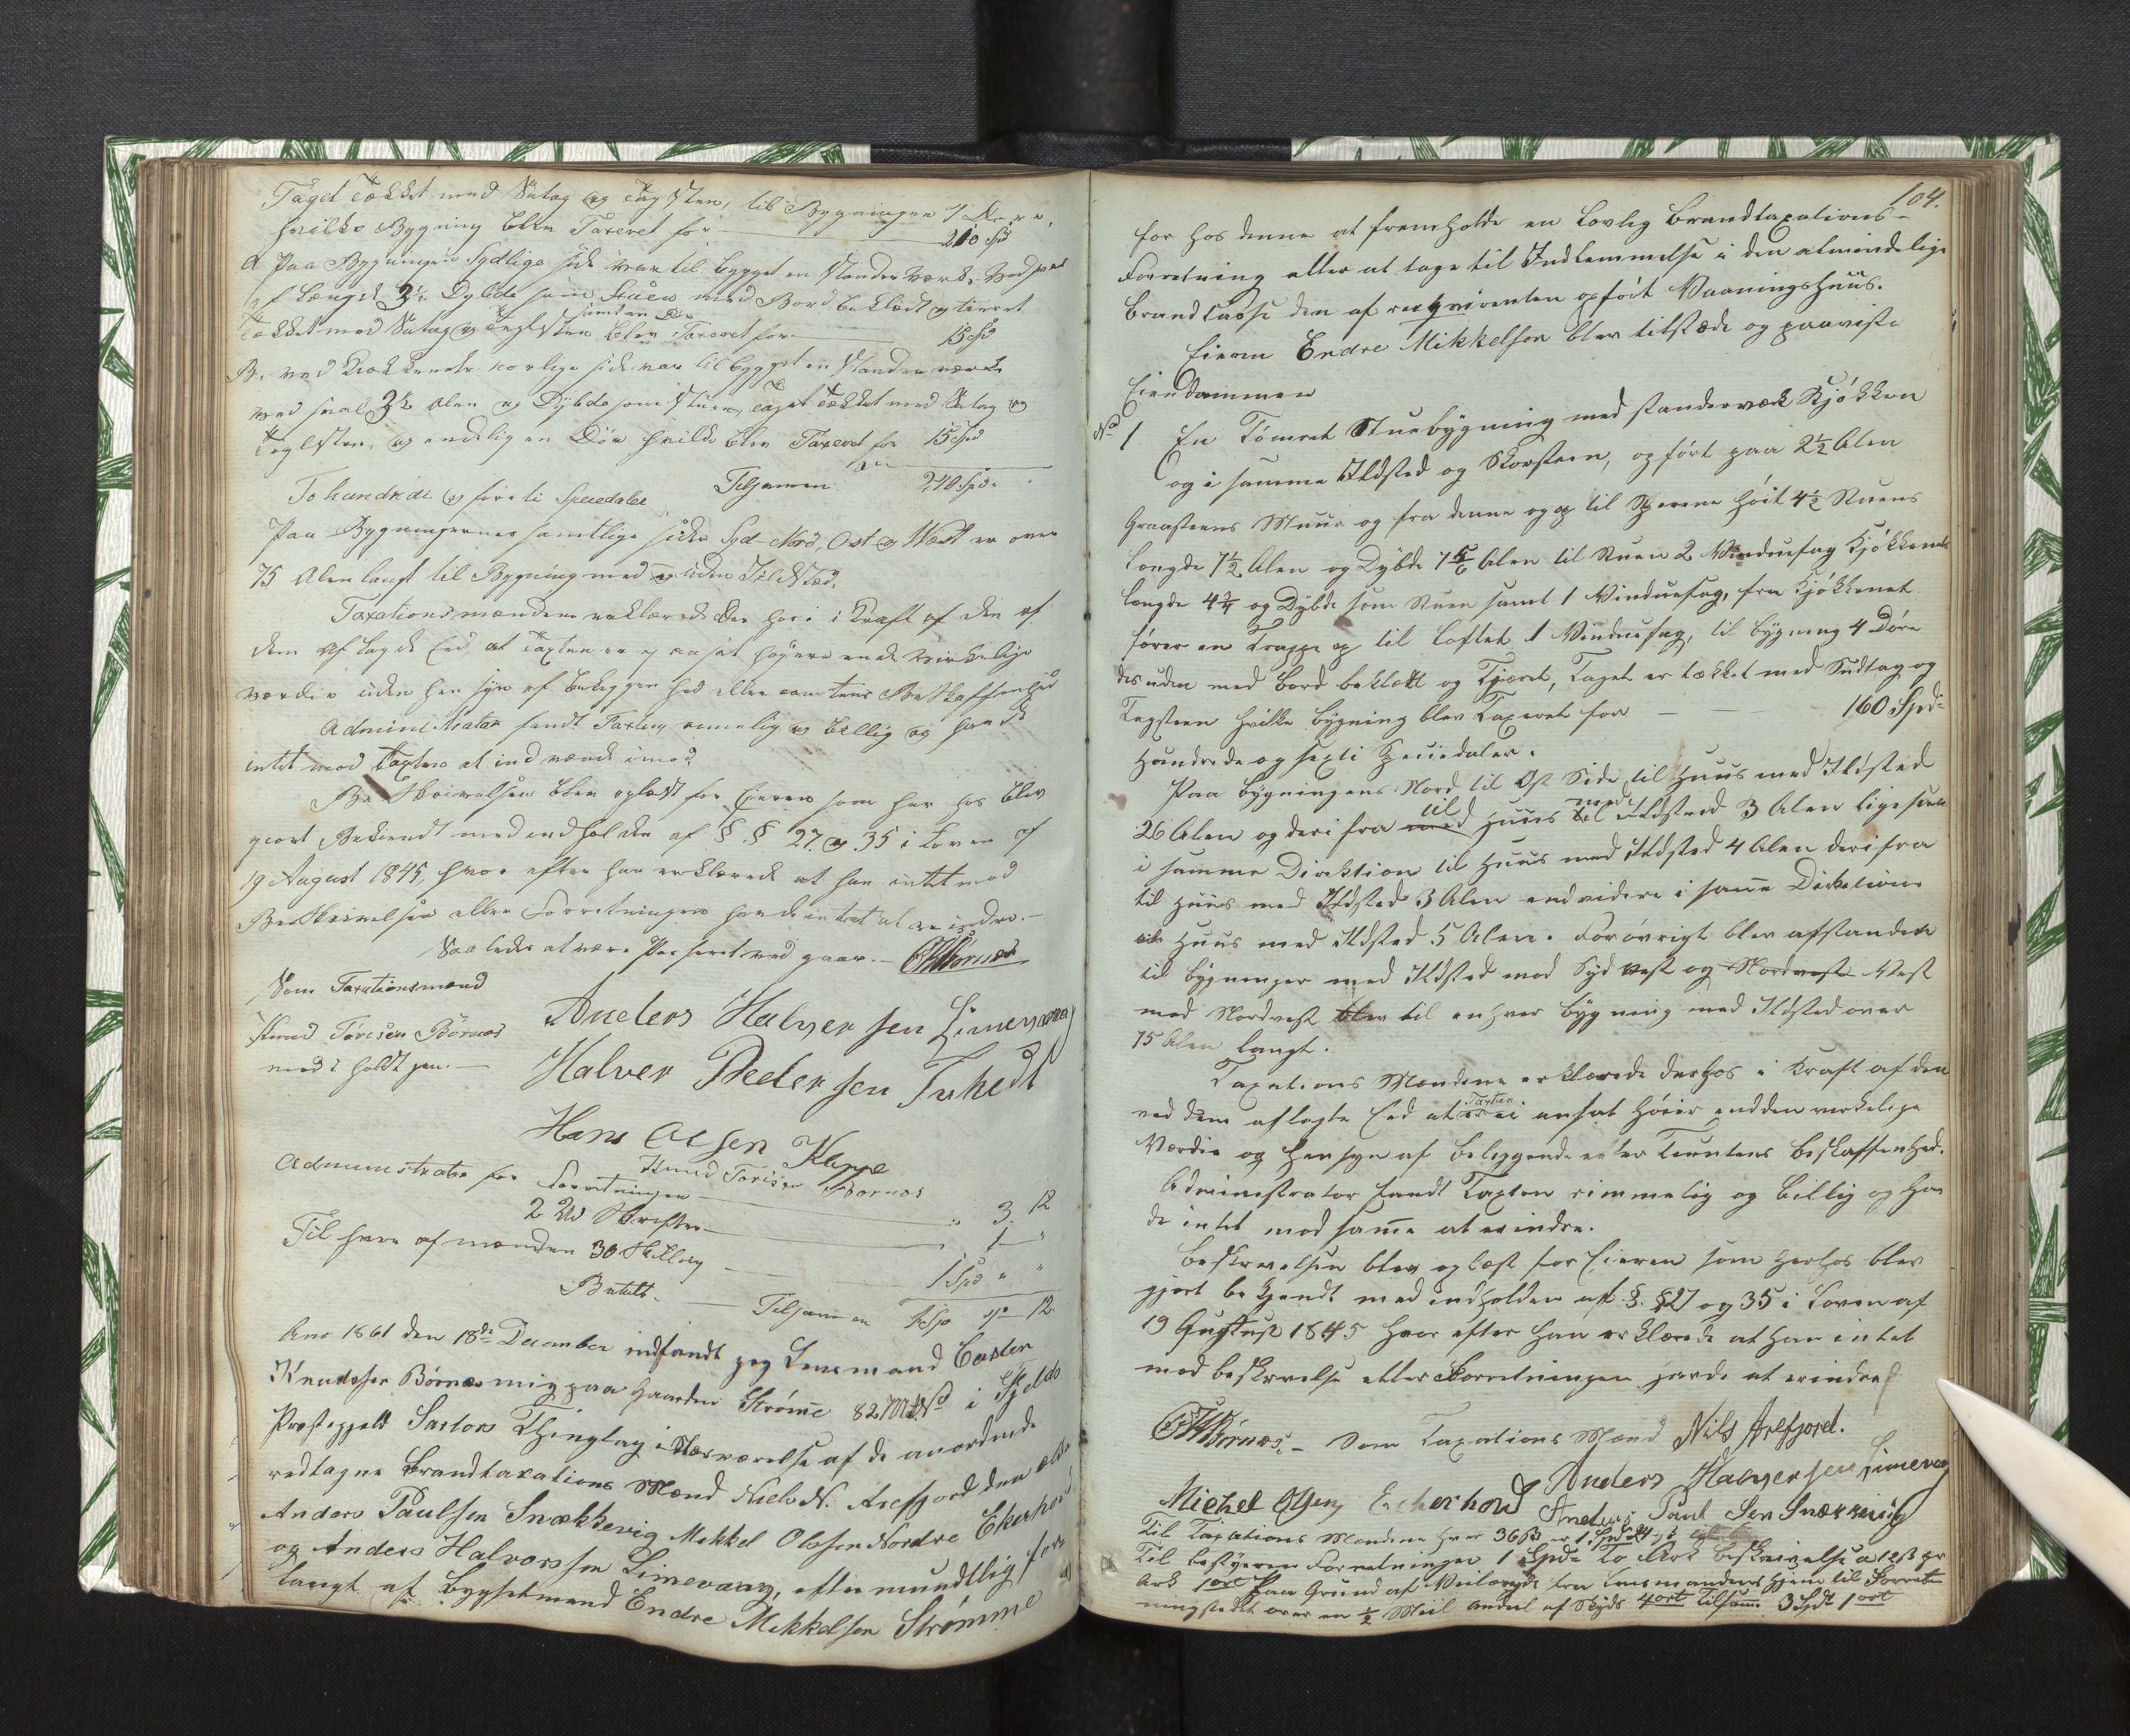 Taget Tækket med Sutag og Tagsten, til Bygningen 7 Døre,
hvilke Bygning blev Taxeret for — 210 Spd
A Paa Bygningens Sydlige side var til bygget en Stander Værk Ved sval
af Længde 3½ Dybde som Stuen med Bord beklædt og tiæret
samt en Dør
Tækket med Sutag og Teglsten blev Taxeret for — 15 Spd
B. ved Kiøkkenets norlige side var til bygget en Stander værk
ved sval 3½ Alen og Dybde som Stuen, Taget Tækket med Sutag og
Teglsten, og endelig en Dør hvilke blev Taxeret for 15 Spd
To hundrede og førreti Speciedaler Tilsammen 240 Spd.
Paa Bygningernes samtlige sider Syd-Nord, Ost og West er over
75 Alen langt til Bygning med og uden Ildsted.
Taxationsmændene erklærede der hos i Kraft af den af
dem aflagde Eed, at Taxten er ej ansat høyere end virkelige
værdie uden hensyn af beleggenhed eller tomtens Beskaffenhed
Administrator fandt Taxten rimelig og billig og havde
intet mod Taxten at indvende imod
Beskrivelsen blev oplæst for Eieren som her hos blev
giort Bekiendt med indholden af §.§ 27. og 35 i Loven af
19 August 1845, hvor efter han erklærede at han intet mod
Beskrivelsen eller Forretningen havde intet at erindre.—
Saaledes at være Passeret ved gaar.— CKBørnæs
Som Taxationsmænd
Knud Torisen Børnæs
med i holdt pen.—
Anders Halversen Limevaag
Halver Pedersen
Hans Olsen Kleppe
Knud Torisen Børnæs
Administrator for Forretningen — " 3. 12
2 Skrifter — 1 "
Til hver af mænden 30 Skilling — 1 Spd " "
Betalt. — Tilsammen 1 Spd 4 12.
Ano 1861 den 18de December indfandt jeg Lensmand Casten
Knudsen Børnæs mig paa Gaarden Strømme 82 Mt No i Fjelds
Præstegjeld Sartors Thinglag i Nærværelse af de anordnede
vedtagne Brandtaxations Mænd Niels N. Arefjord den ælde
Anders Paulsen Snækkevig Mikkel Olssen Nordre Ekerhovd
og Anders Halvorssen Limevaag, efter mundtlig for
langt af bygsetmand Endre Mikkelsen Strømme
104.
for hos denne at fremholde en lovlig Brandtaxations-
Forretning eller at tage til Indlemmelse i den almindelige
Brandkasse den af reqvirenten opført Vaaningshuus.
Eieren Endre Mikkelsen blev tilstæde og paaviste
Eiendommen
No 1 En Tømret Stuebygning med standervæk Kjøkken
og i samme Ildsted og Skorsteen, opført paa 2½ Alen
Graasteens Muur og fra denne og op til Sperrene høit 4½ Stuens
Længde 7½ Alen og Dybde 7 5/6 Alen til Stuen 2 Vinduefag Kjøkkenets
længde 4¾ og Dybde som Stuen samt 1 Vinduefag, fra Kjøkkenet
fører en Trappe op til Loftet 1 Vinduefag, til bygning 4 Døre
des uden med Bord beklædt og Tjæret, Taget er tækket med Sudtag og
Tagsteen hvilke bygning blev Taxeret for — — 160 Spd
Hundrede og sexti Speciedaler.
Paa bygningens Nord til Ost Side til Huus med Ildsted
26 Alen og deri fra til Huus med Ildsted 3 Alen ligesaa
i samme Direktion til Huus med Ildsted 4 Alen derifra
til Huus med Ildsted 3 Alen endvidere i same Direktion
til Huus med Ildsted 5 Alen. Forøvrigt blev afstanden
til bygninger med Ildsted mod Syd Vest og Nordvest Vest
mod Nordvest blev til enhver bygning med Ildsted over
75 Alen langt.
Taxations Mændene erklærede derhos i Kraft af den
ved dem aflagte Eed at Taxten er ei ansat høier end den virkelige
Værdie og hensyn af beleggende eller Tomtens beskaffenhed.
Administrator fandt Taxten rimmelig og billig og hav
de intet mod same at erindre.
Beskrivelsen blev oplæst for Eieren som herhos blev
gjort bekjendt med indholden af §. §27 og 35 i Loven af
19 August 1845 hvor efter han erklærede at han intet
mod beskrivelse eller Forretningen havde at erindre
CKBørnæs.— Som Taxations Mænd Nils Arefjord.
Anders Halversen Limevaag
Michel Olsen Eckerhovd Anders Paul Sen Snækkevig
Til Taxations Mændene hver 36 ß er 1 Spd
Til bestyreren Forretningen 1 Spd to Ark beskrivelse a 12 ß pr
Ark 1 ort Paa Grund af Veilængde fra Lensmandens Hjem til Forret
ningstedet over en ½ Miil andeel af Skyds 4 ort Tilsamen 3 Spd 1 ort